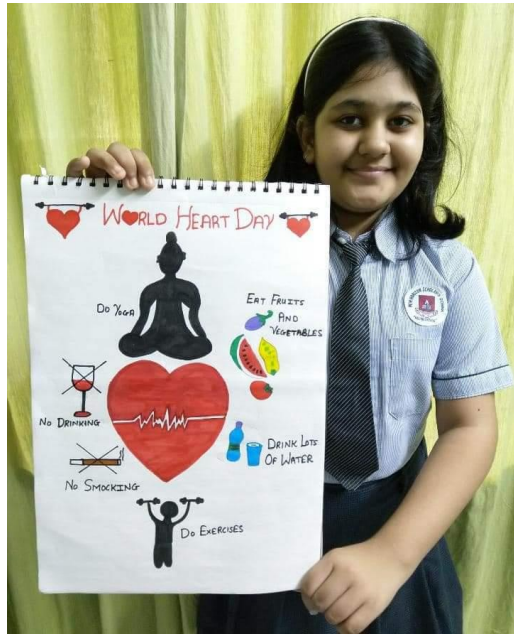 WORLD HEART DAY
DO YOGA
EAT FRUITS
AND
VEGETABLES
NO DRINKING
DRINK LOTS
OF WATER
NO SMOCKING
DO EXERCISES